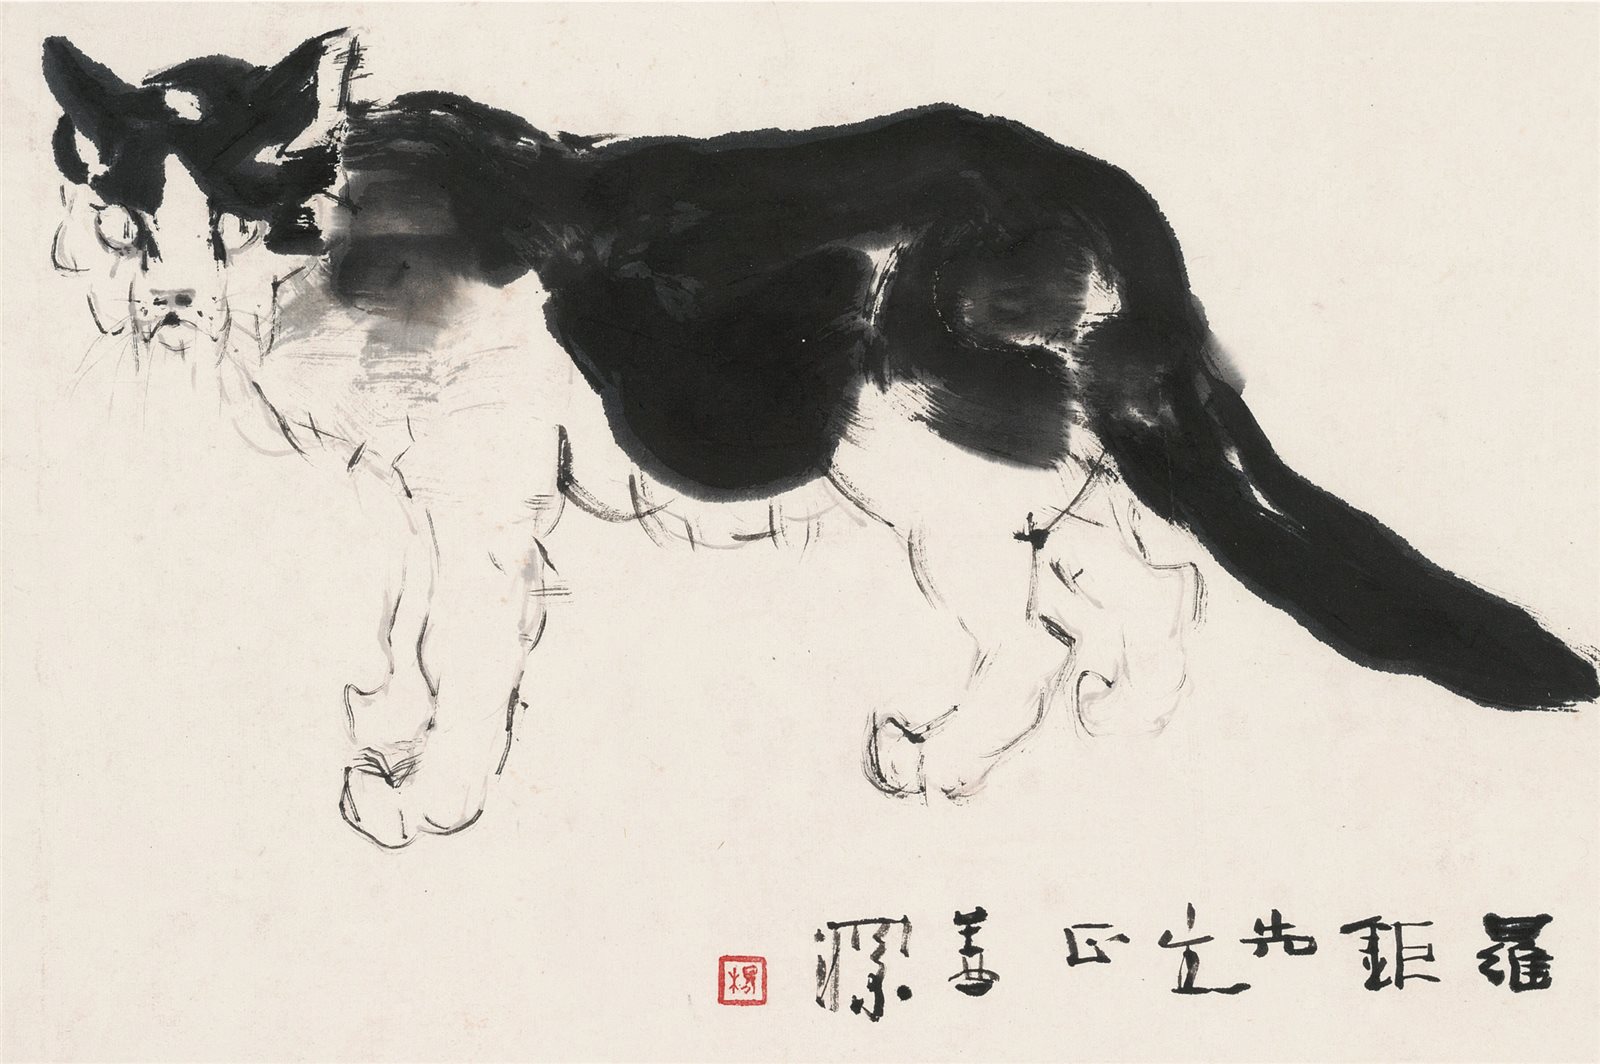 羅鉅先生正 善深
楊